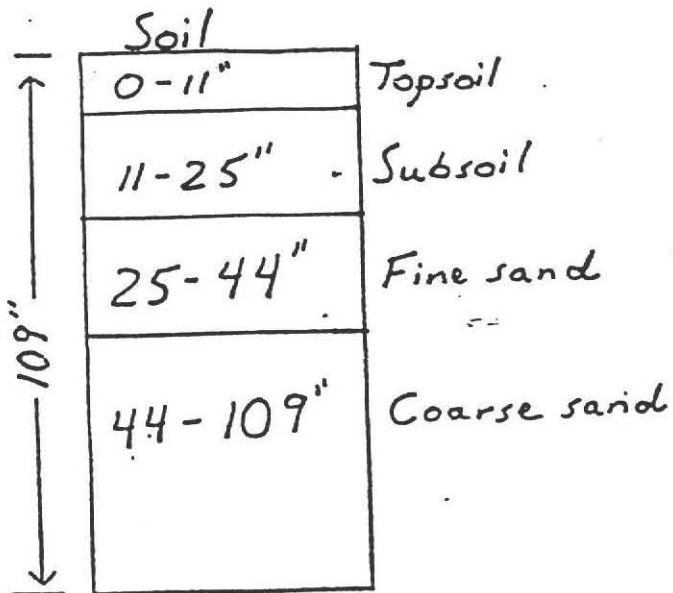 Soil
0-11" Topsoil
11-25" Subsoil
25-44" Fine sand
109"
44-109" Coarse sand